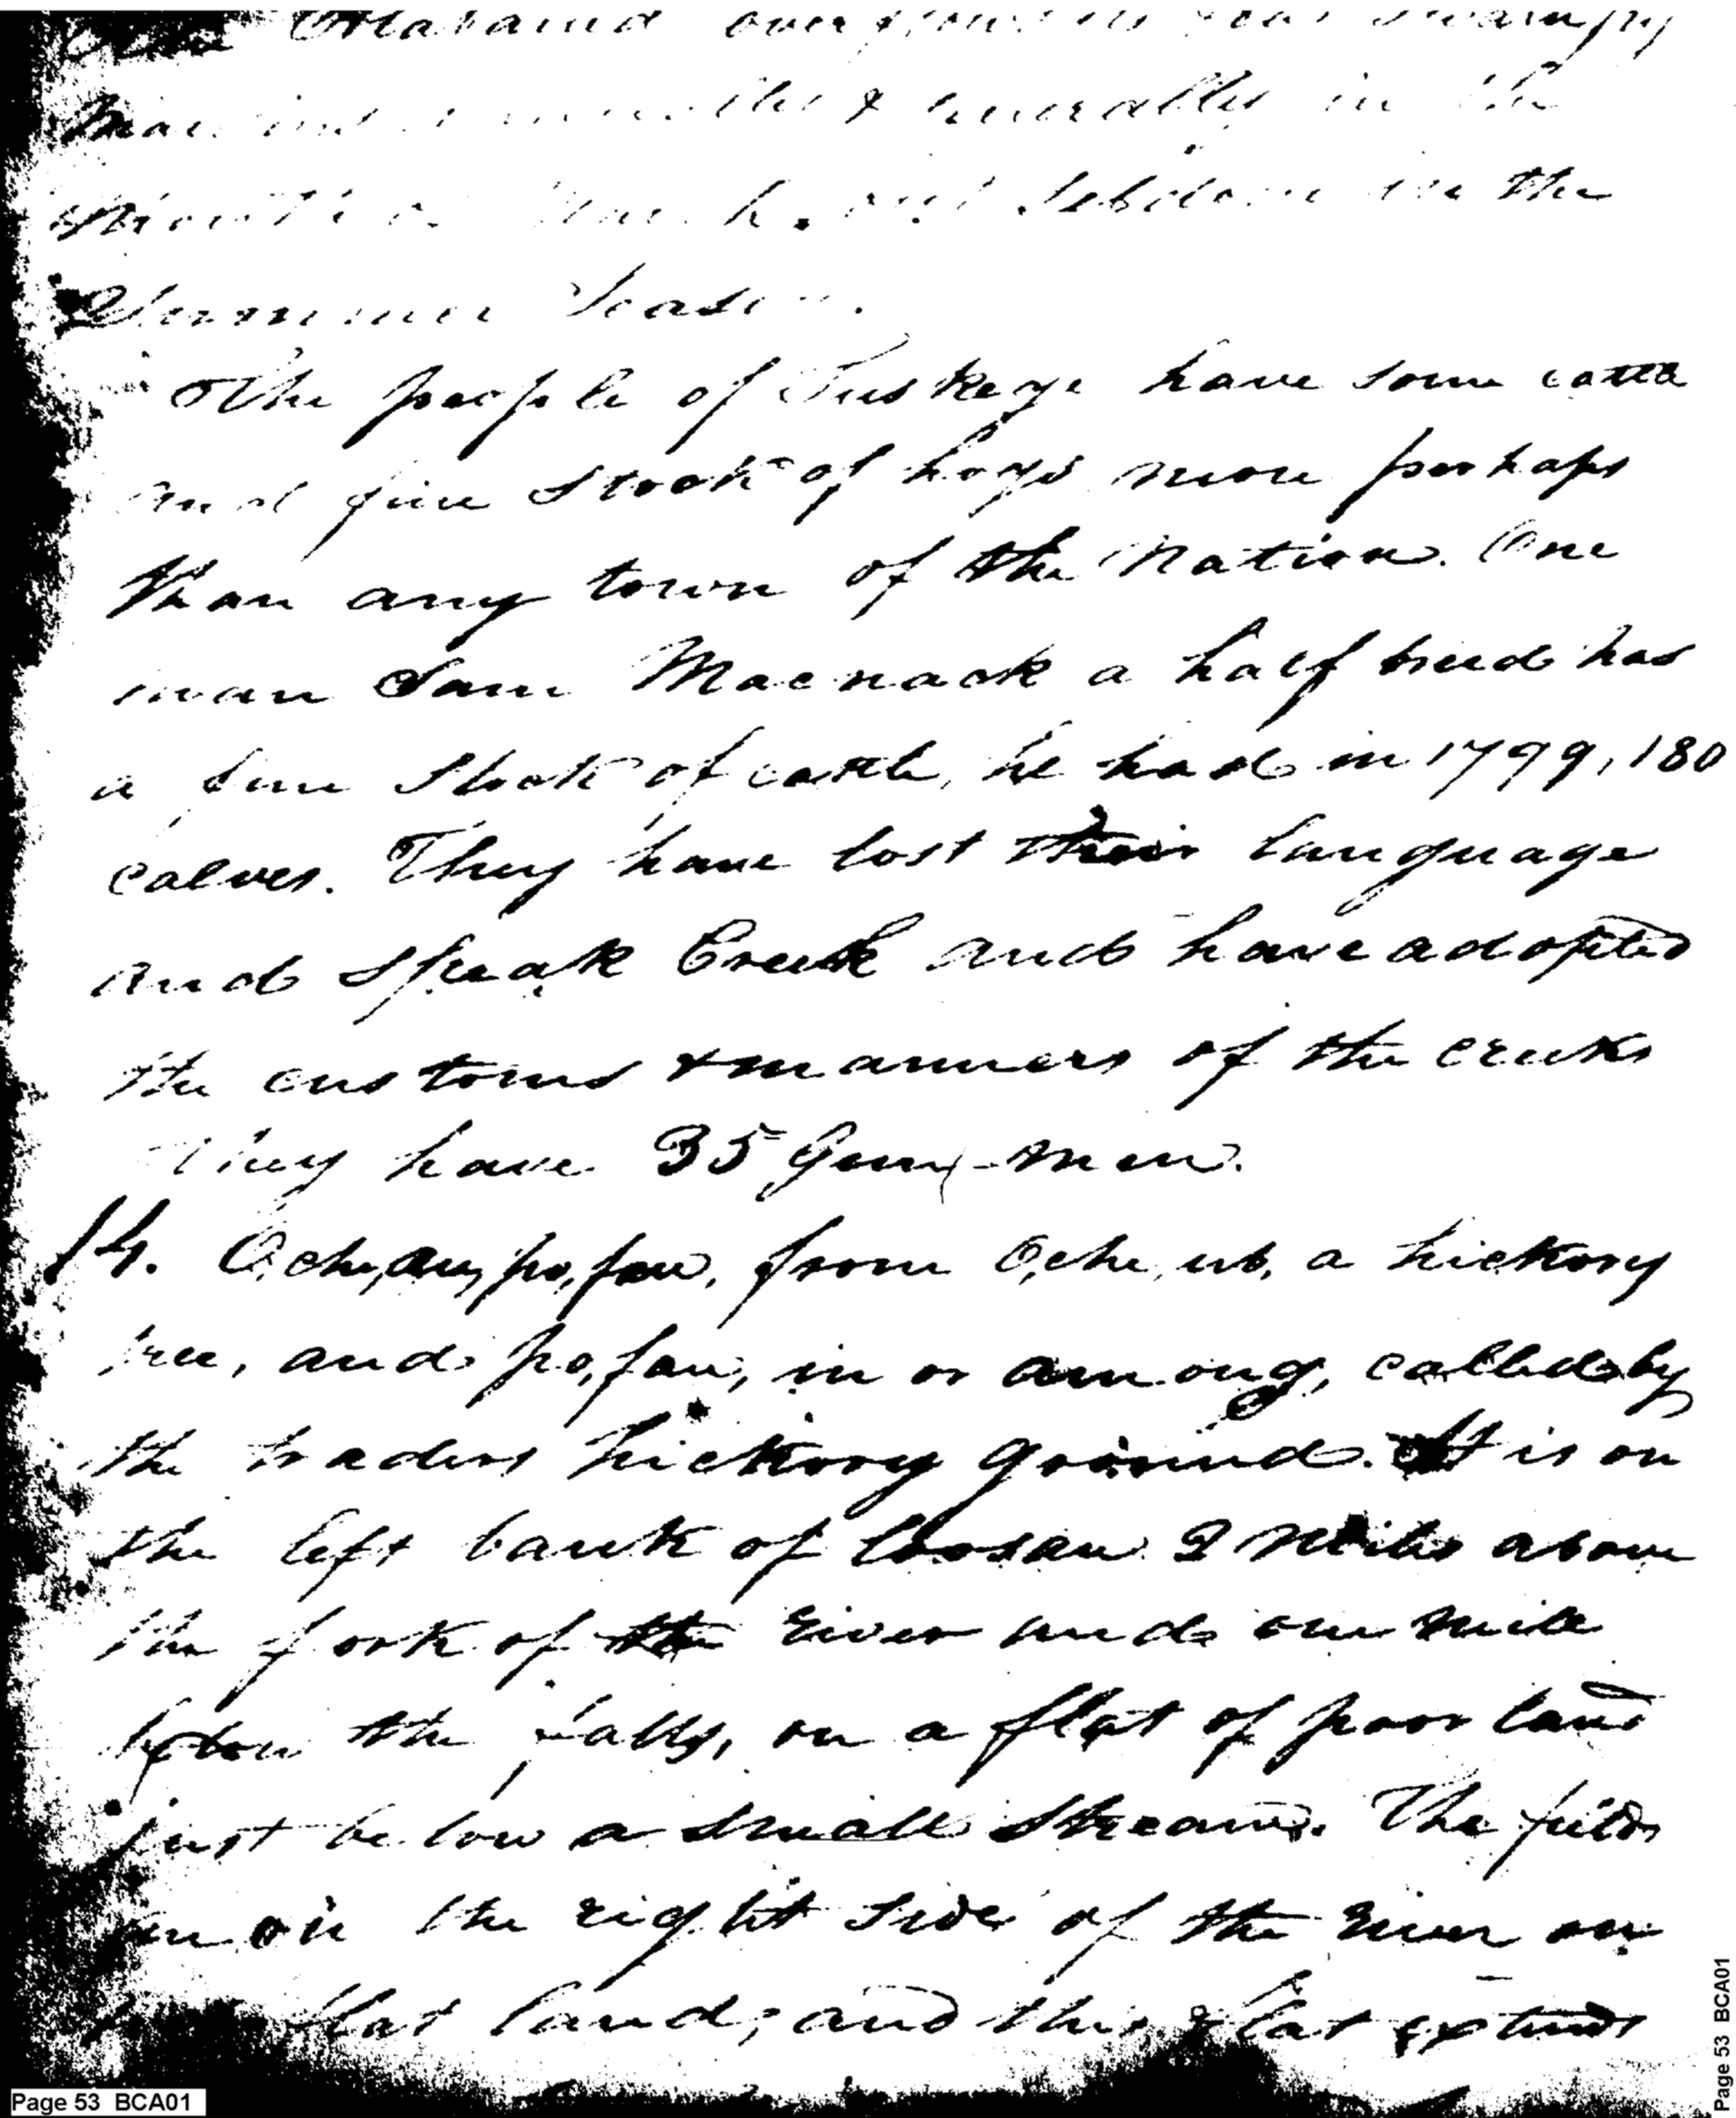 Alabama overflows its swampy
& generally in the
March, and Seldom in the
Summer Season.
The people of Tuskege have some cattle
and fine Stock of hogs more perhaps
than any town of the Nation. One
man Sam Macnack a half breed has
a fine Stock of cattle, he had in 1799, 180
calves. They have lost their language
and Speak Creek and have adopted
the customs & manners of the creeks
They have 35 Gun-men.
14. O,che,au,po,fau, from O,che,ub, a hickory
tree, and po,fau, in or among, called by
the traders hickory ground. It is on
the left bank of Coosau 2 Miles above
the fork of the River and one mile
below the falls, on a flat of poor land
just below a small Stream. The fields
are on the right side of the River on
flat land; and this flat extends
Page 53 BCA01
Page 53 BCA01